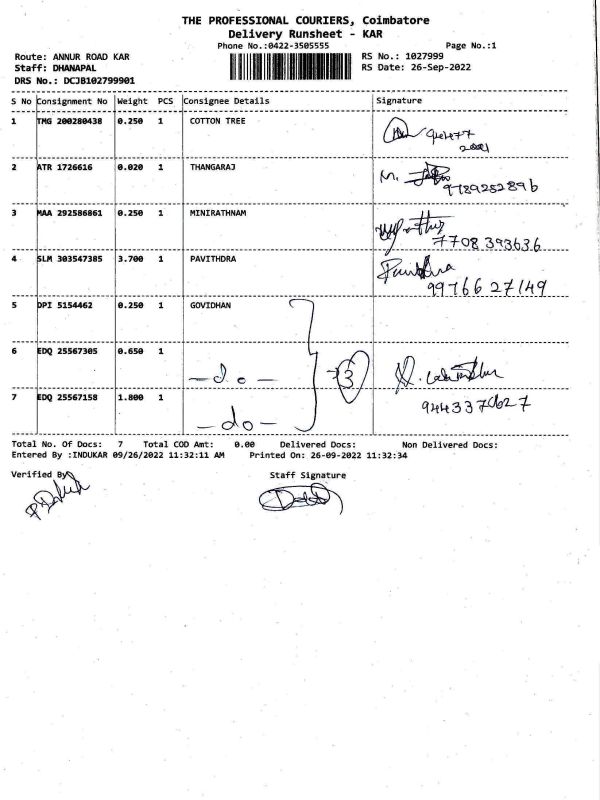 THE PROFESSIONAL COURIERS, Coimbatore
Delivery Runsheet - KAR
Phone No.:0422-3505555 Page No.:1
Route: ANNUR ROAD KAR RS No.: 1027999
Staff: DHANAPAL RS Date: 26-Sep-2022
DRS No.: DCJB102799901
S No Consignment No Weight PCS Consignee Details Signature
1 TMG 200280438 0.250 1 COTTON TREE
2 ATR 1726616 0.020 1 THANGARAJ
M.
9789252896
3 MAA 292586861 0.250 1 MINIRATHNAM
7708393636
4 SLM 303547385 3.700 1 PAVITHDRA
9976627149
5 DPI 5154462 0.250 1 GOVIDHAN
6 EDQ 25567305 0.650 1
-do- 3
7 EDQ 25567158 1.800 1
-do-
Total No. Of Docs: 7 Total COD Amt: 0.00 Delivered Docs: Non Delivered Docs:
Entered By :INDUKAR 09/26/2022 11:32:11 AM Printed On: 26-09-2022 11:32:34
Verified By Staff Signature